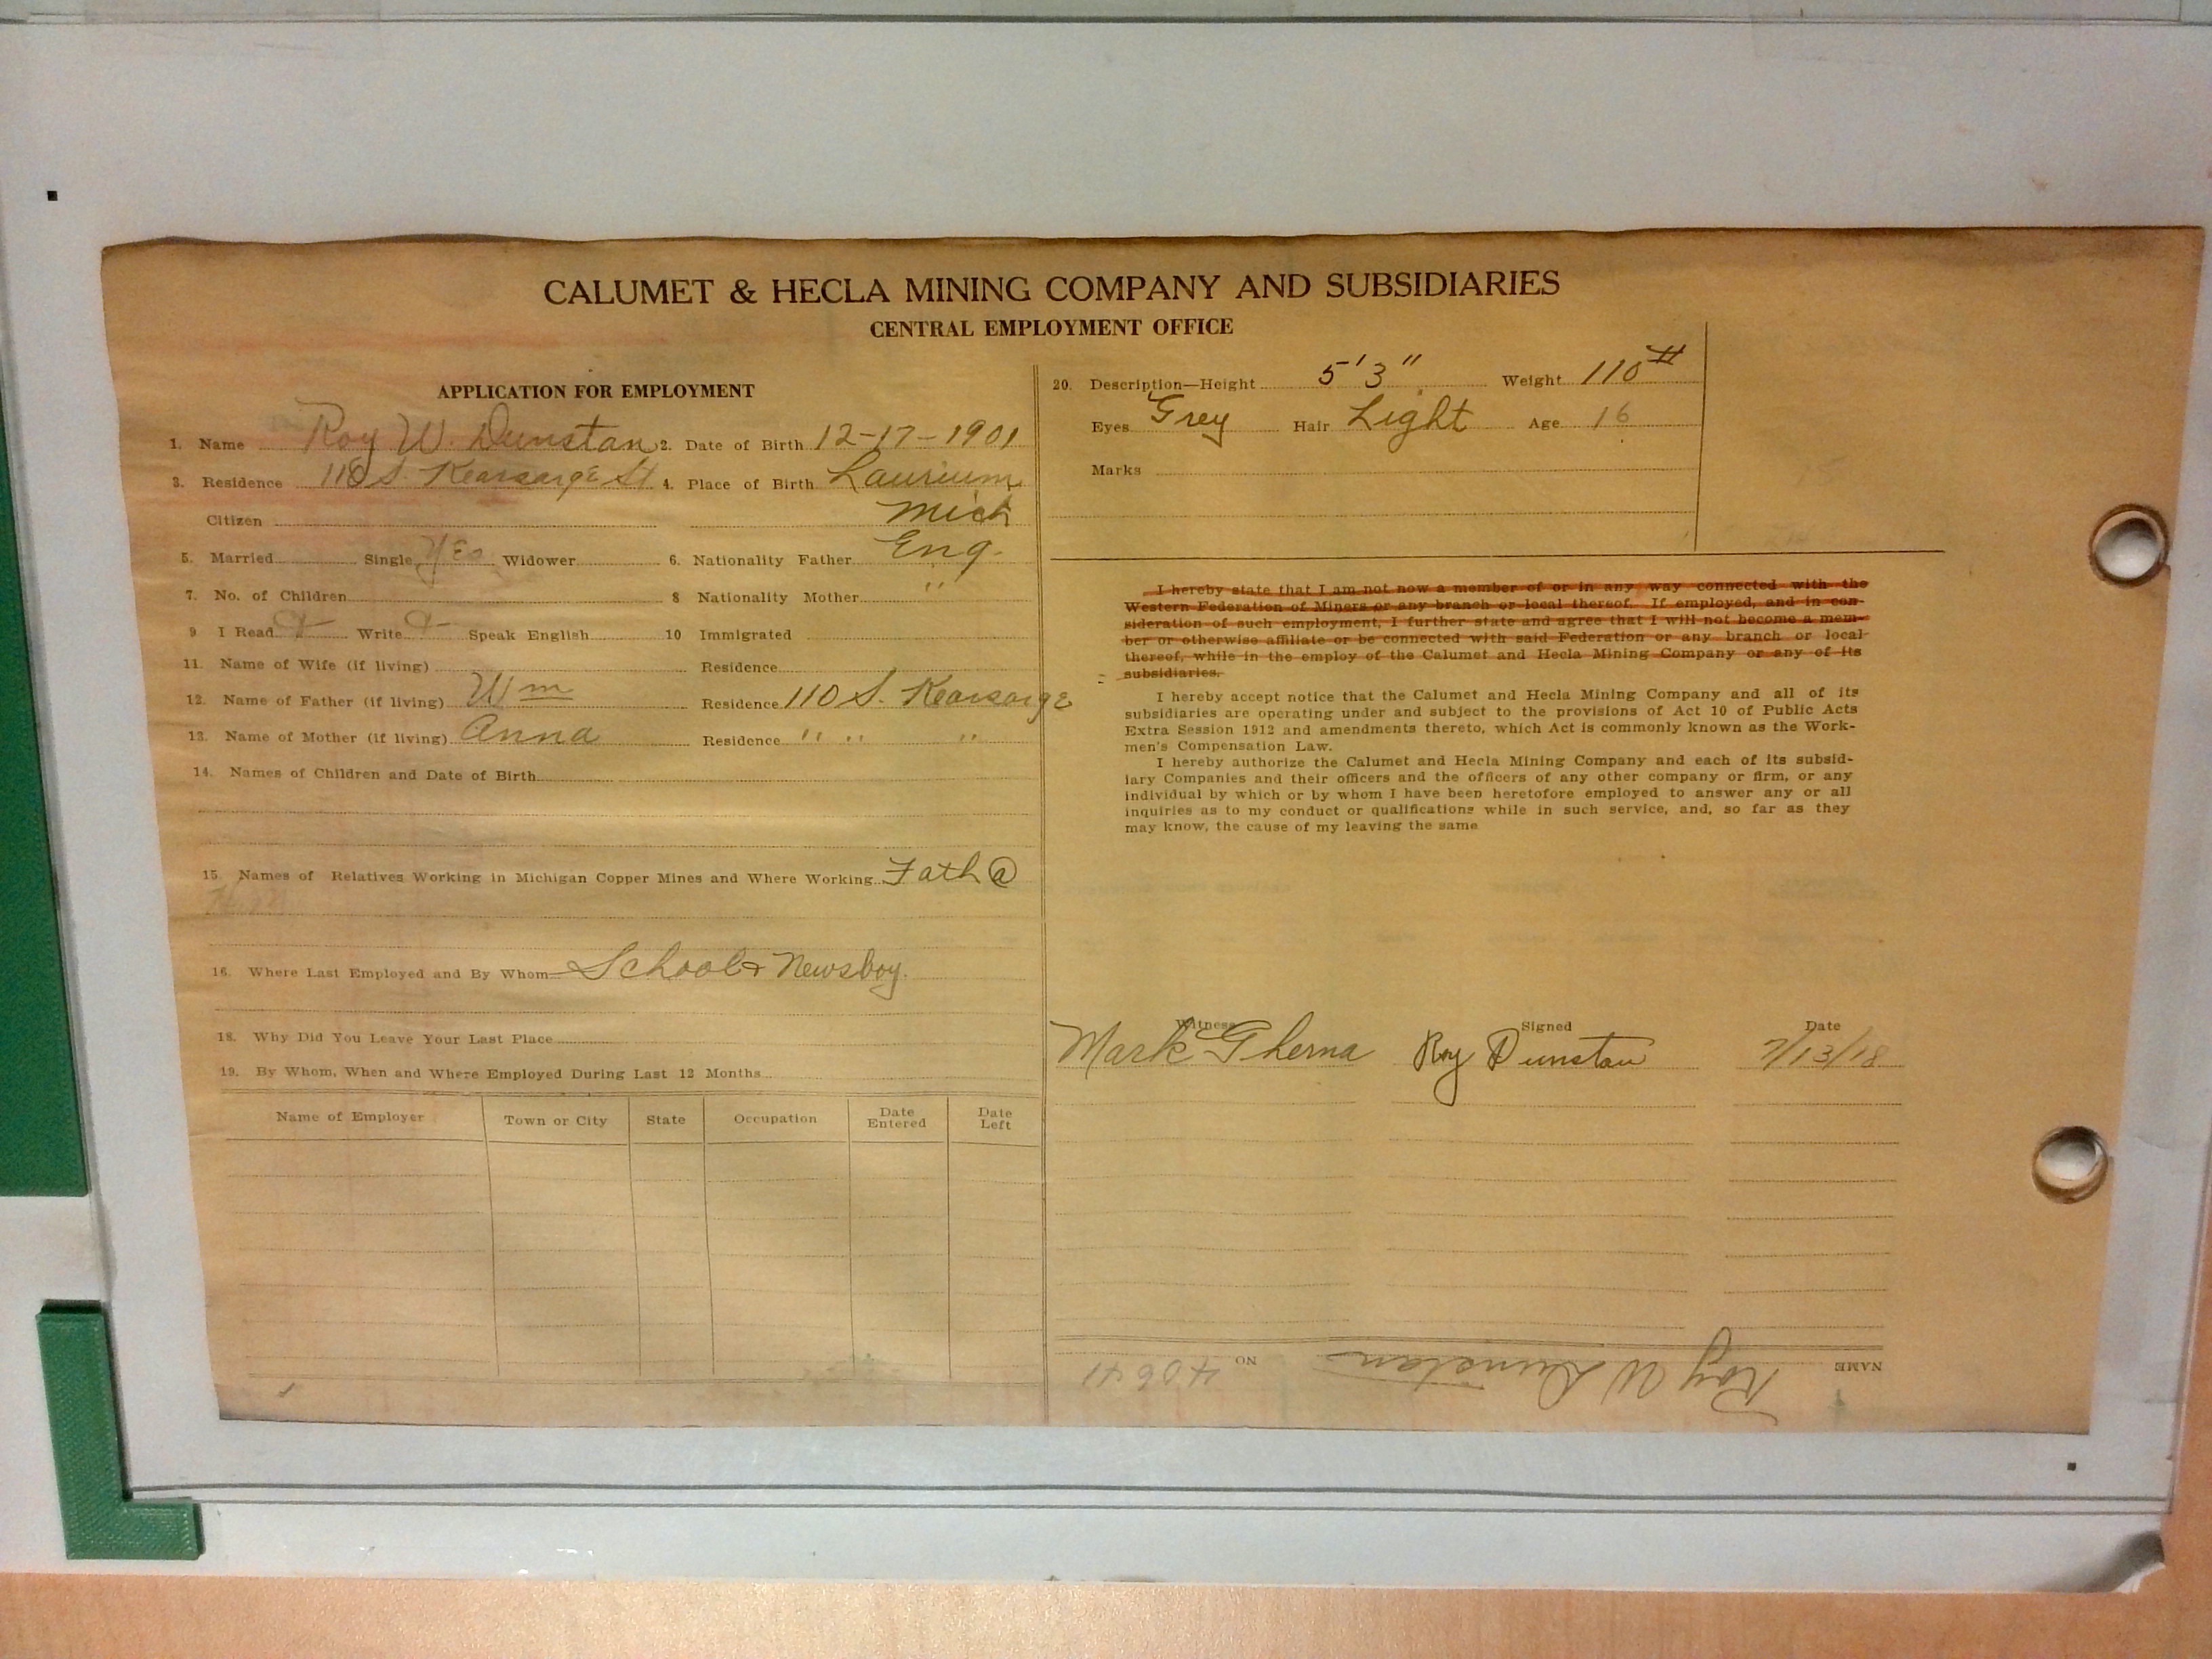 CALUMET & HECLA MINING COMPANY AND SUBSIDIARIES
CENTRAL EMPLOYMENT OFFICE
APPLICATION FOR EMPLOYMENT
1. Name Roy W. Dunstan 2. Date of Birth 12-17-1901
3. Residence 110 S. Kearsarge St 4. Place of Birth Laurium
Citizen Mich
5. Married Single Yes Widower 6. Nationality Father Eng.
7. No. of Children 8 Nationality Mother "
9 I Read Write Speak English 10 Immigrated
11. Name of Wife (if living) Residence
12. Name of Father (if living) Wm Residence 110 S. Kearsarge
13. Name of Mother (if living) Anna Residence " " "
14. Names of Children and Date of Birth
15. Names of Relatives Working in Michigan Copper Mines and Where Working Fath @
16. Where Last Employed and By Whom School & Newsboy.
18. Why Did You Leave Your Last Place
19. By Whom, When and Where Employed During Last 12 Months
Name of Employer Town or City State Occupation Date Entered Date Left
20. Description—Height 5'3" Weight 110#
Eyes Grey Hair Light Age 16
Marks
I hereby state that I am not now a member of or in any way connected with the
Western Federation of Miners or any branch or local thereof. If employed, and in con-
sideration of such employment, I further state and agree that I will not become a mem-
ber or otherwise affiliate or be connected with said Federation or any branch or local
thereof, while in the employ of the Calumet and Hecla Mining Company or any of its
subsidiaries.
I hereby accept notice that the Calumet and Hecla Mining Company and all of its
subsidiaries are operating under and subject to the provisions of Act 10 of Public Acts
Extra Session 1912 and amendments thereto, which Act is commonly known as the Work-
men's Compensation Law.
I hereby authorize the Calumet and Hecla Mining Company and each of its subsid-
iary Companies and their officers and the officers of any other company or firm, or any
individual by which or by whom I have been heretofore employed to answer any or all
inquiries as to my conduct or qualifications while in such service, and, so far as they
may know, the cause of my leaving the same
Witness Signed Date
Mark Gherna Roy Dunstan 7/13/18
NAME Roy W Dunstan NO 40641